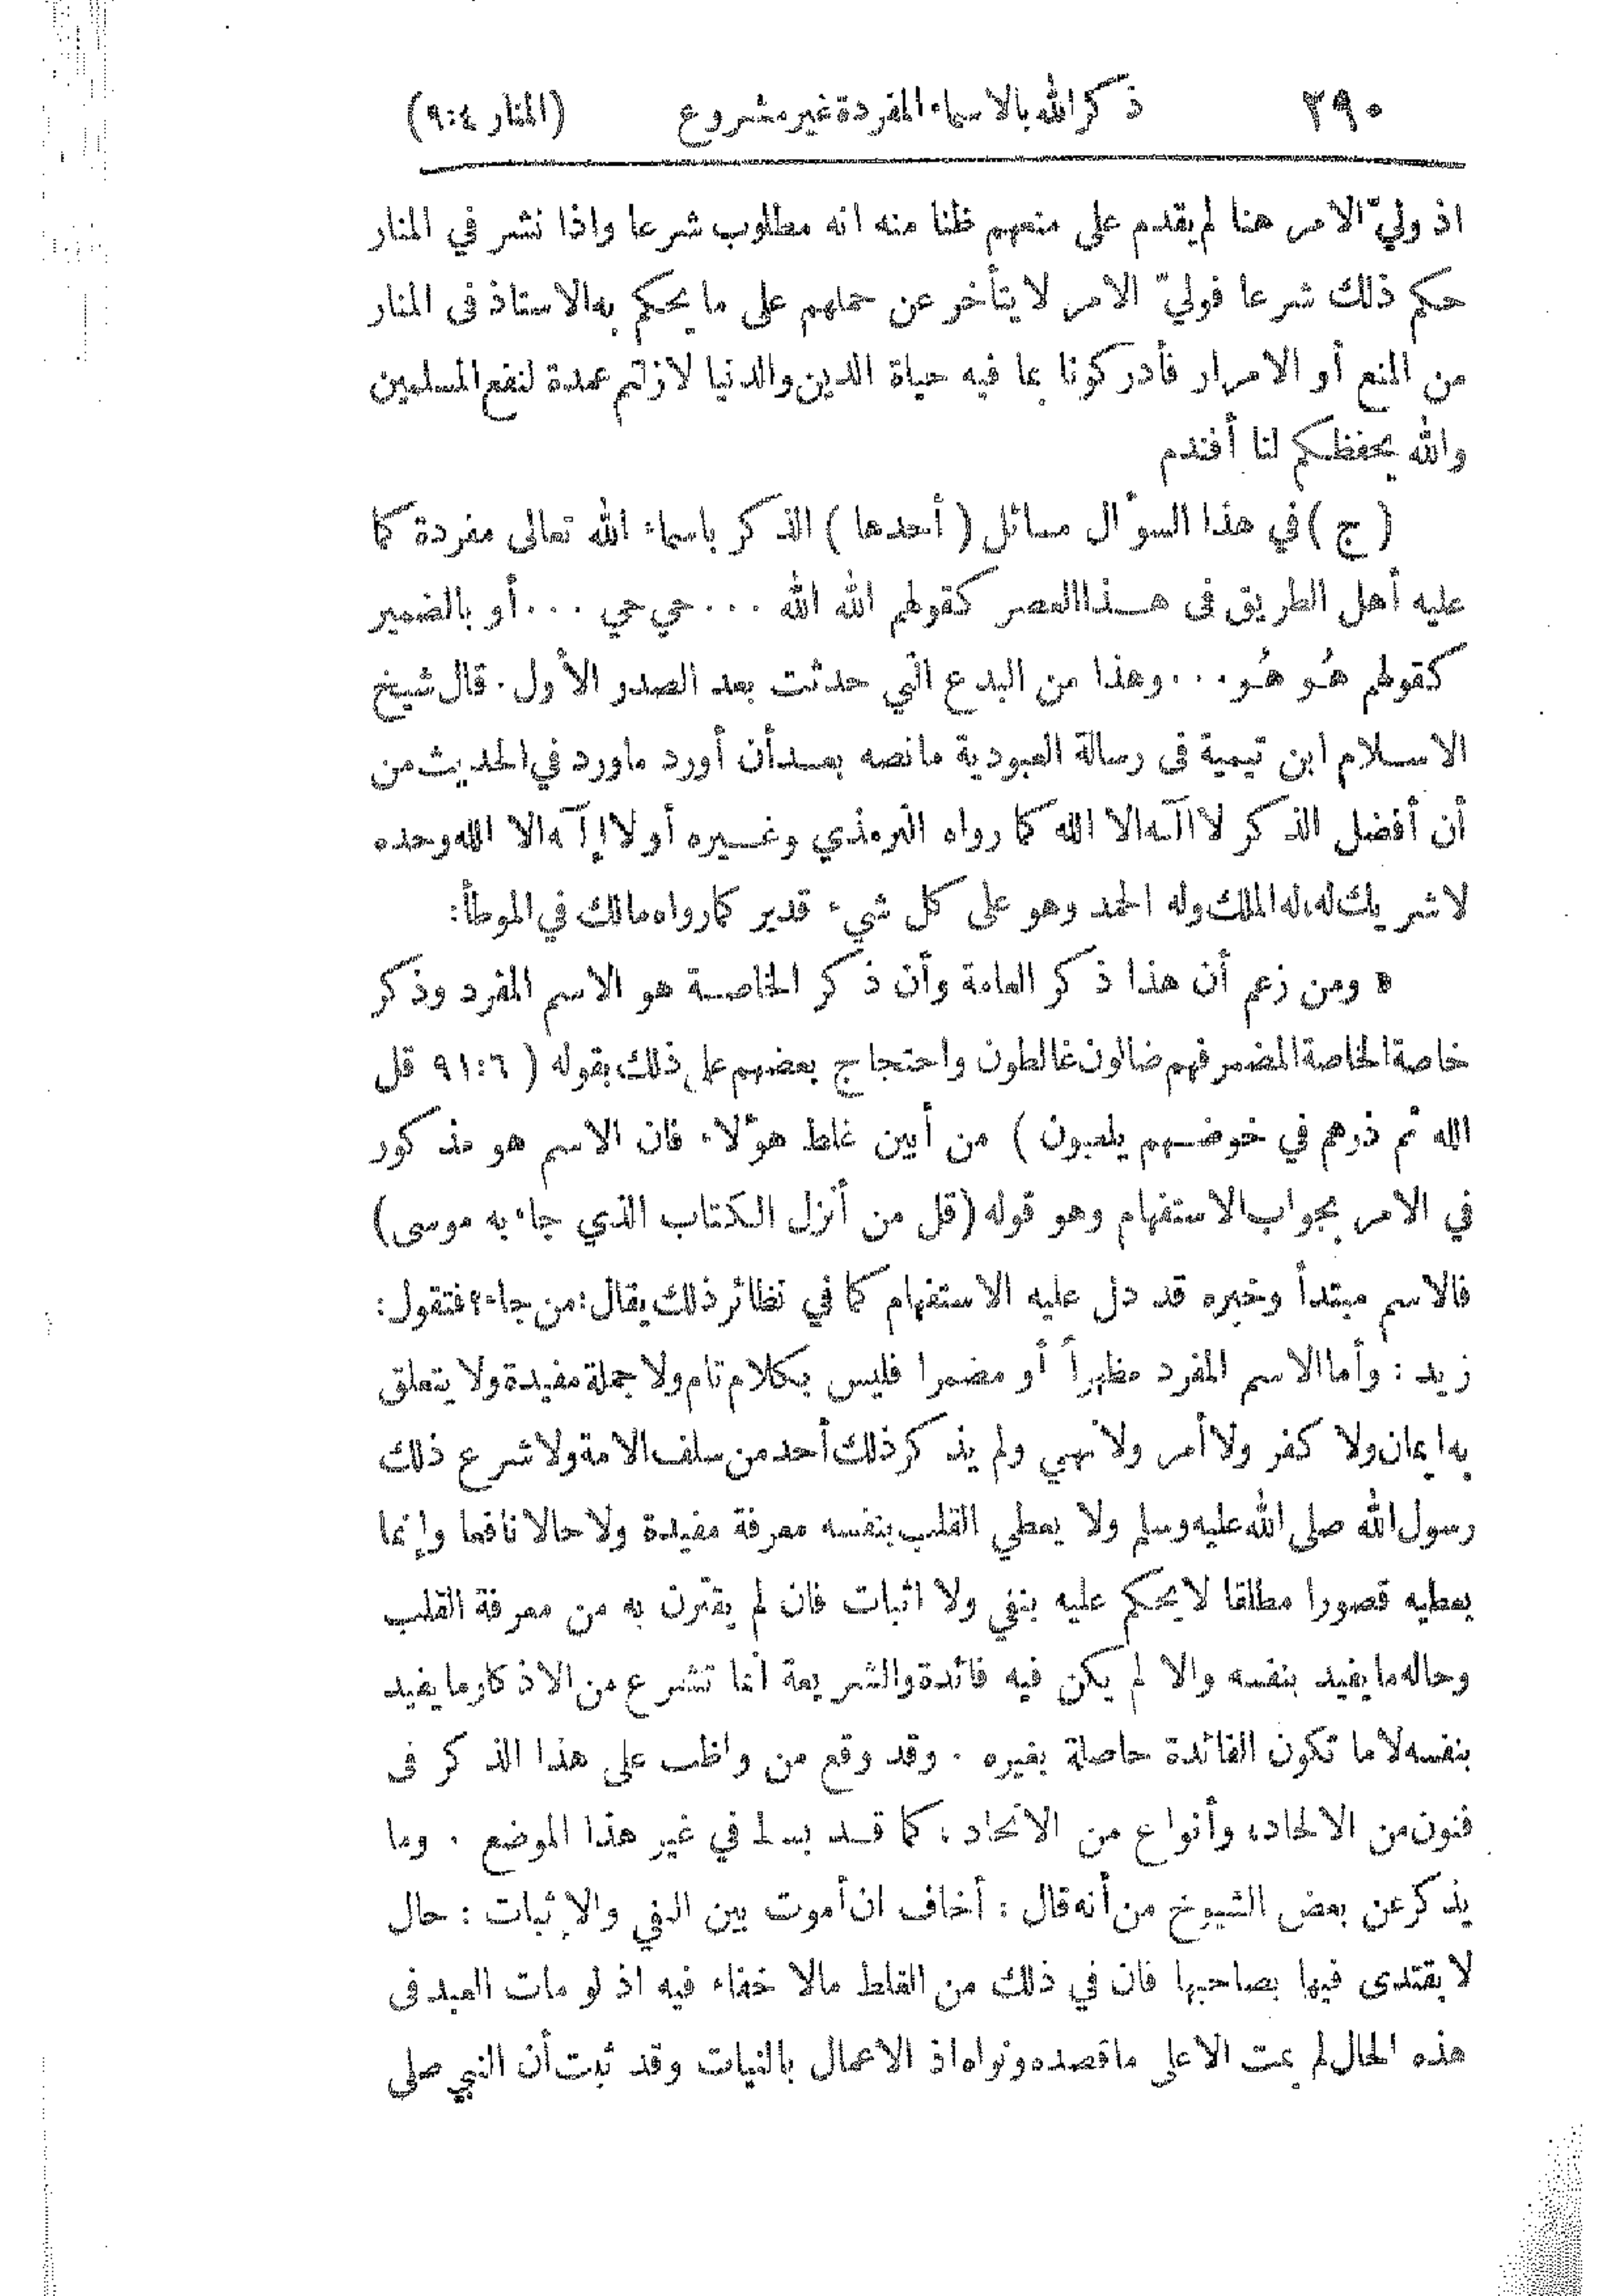 ٢٩٠ ذكر الله بالاسماء المفردة غير مشروع (المنار ٤:٩)
اذ وليّ الامر هنا لم يقدم على منعهم ظنا منه انه مطلوب شرعا واذا نشر في المنار
حكم ذلك شرعا فوليّ الامر لا يتأخر عن حملهم على ما يحكم به الاستاذ فى المنار
من المنع أو الامرار فأدركونا بما فيه حياة الدين والدنيا لازلتم عمدة لنفع المسلمين
والله يحفظكم لنا أفندم
(ج) في هذا السؤال مسائل (أحدها) الذكر باسماء الله تعالى مفردة كما
عليه أهل الطريق فى هـذا العصر كقولهم الله الله ... حي حي ... أو بالضمير
كقولهم هُو هُو ... وهذا من البدع التي حدثت بعد الصدر الأول . قال شيخ
الاسلام ابن تيمية فى رسالة العبودية ما نصه بعـد أن أورد ما ورد في الحديث من
أن أفضل الذكر لا اآـه الا الله كما رواه الترمذي وغـيره أو لا إآـه الا الله وحده
لا شريك له، له الملك وله الحمد وهو على كل شيء قدير كما رواه مالك في الموطأ:
« ومن زعم أن هذا ذكر العامة وأن ذكر الخاصـة هو الاسم المفرد وذكر
خاصة الخاصة المضمر فهم ضالون غالطون واحتجاج بعضهم على ذلك بقوله (٩١:٦ قل
الله ثم ذرهم في خوضـهم يلعبون) من أبين غلط هؤلاء فان الاسم هو مذكور
في الامر بجواب الاستفهام وهو قوله (قل من أنزل الكتاب الذي جاء به موسى)
فالاسم مبتدأ وخبره قد دل عليه الاستفهام كما في نظائر ذلك يقال: من جاء؟ فتقول:
زيد : وأما الاسم المفرد مظهراً أو مضمرا فليس بكلام تام ولا جملة مفيدة ولا يتعلق
به ايمان ولا كفر ولا أمر ولا نهي ولم يذكر ذلك أحد من سلف الامة ولا شرع ذلك
رسول الله صلى الله عليه وسلم ولا يعطي القلب بنفسه معرفة مفيدة ولا حالا نافعا وإنما
يعطيه قصورا مطلقا لا يحكم عليه بنفي ولا اثبات فان لم يقترن به من معرفة القلب
وحاله ما يفيد بنفسه والا لم يكن فيه فائدة والشريعة انما تشرع من الاذكار ما يفيد
بنفسه لا ما تكون الفائدة حاصلة بغيره . وقد وقع من واظب على هذا الذكر فى
فنون من الالحاد، وأنواع من الاتحاد ، كما قـد بسط في غير هذا الموضع . وما
يذكر عن بعض الشيوخ من أنه قال : أخاف ان أموت بين النفي والإثبات : حال
لا يقتدى فيها بصاحبها فان في ذلك من الغلط مالا خفاء فيه اذ لو مات العبد فى
هذه الحال لم يمت الا على ما قصده ونواه اذ الاعمال بالنيات وقد ثبت أن النبي صلى